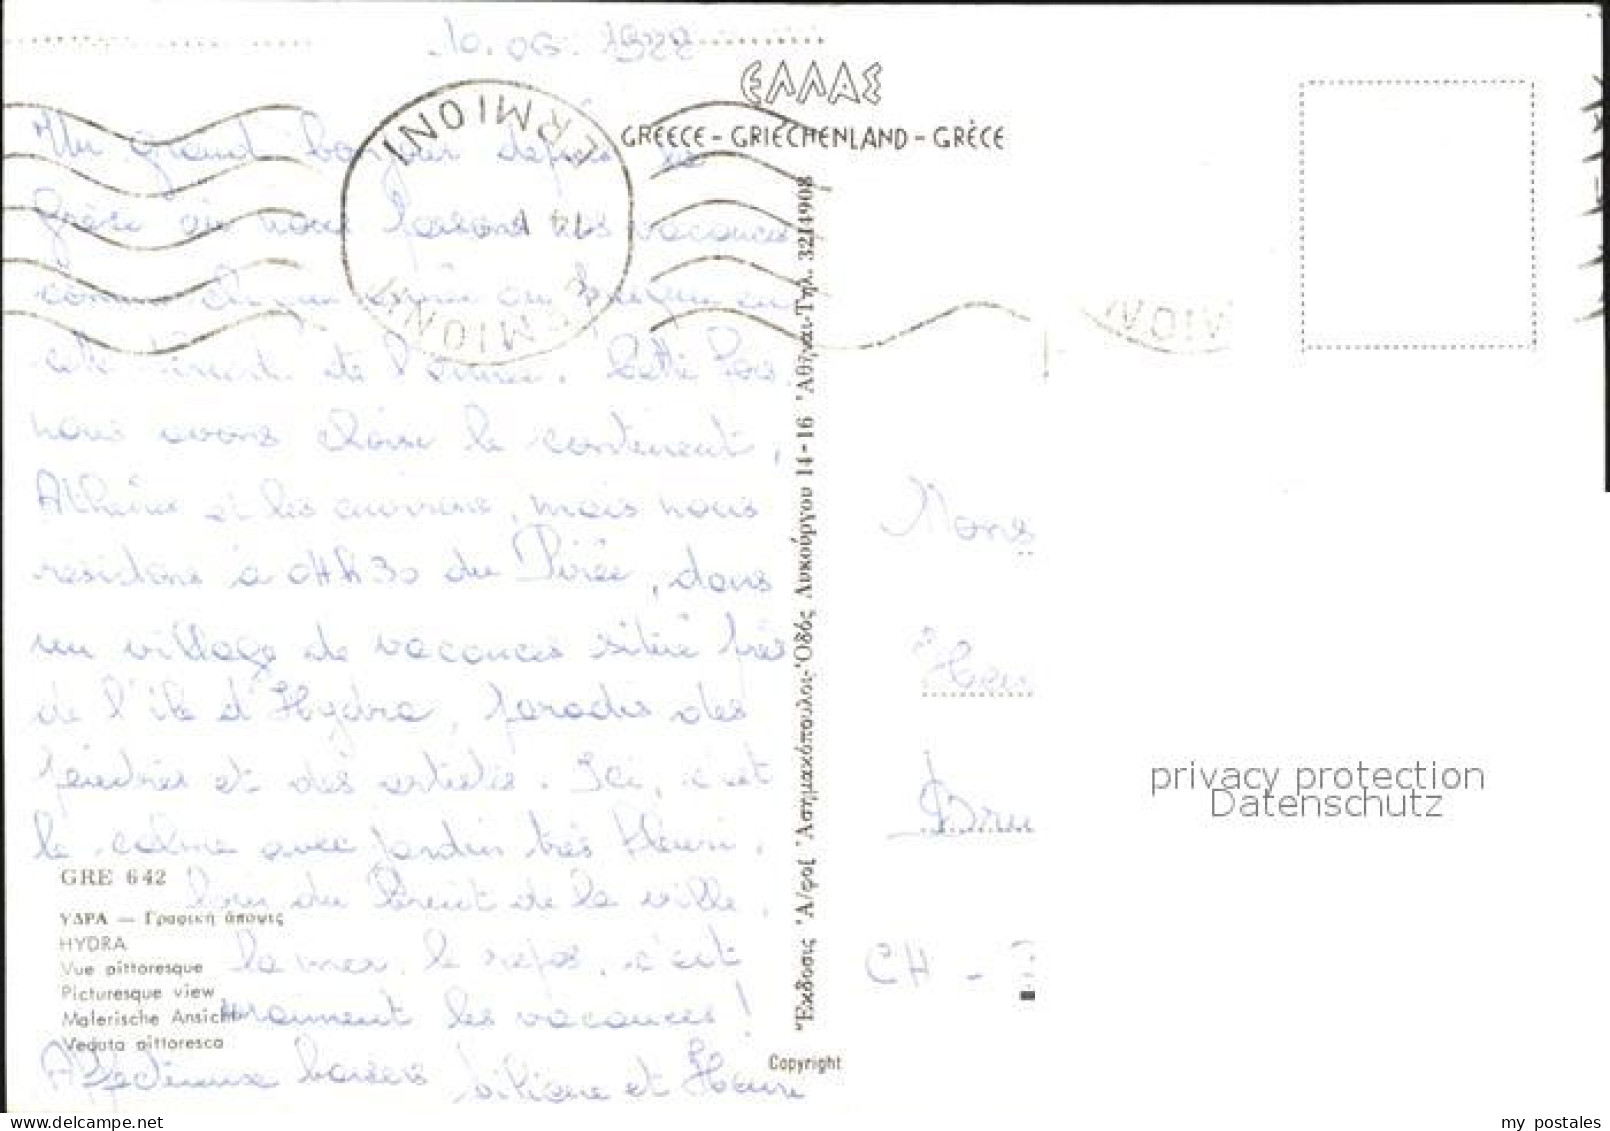 10.06.1988
ΕΛΛΑΣ
GREECE - GRIECHENLAND - GRÈCE
ERMIONI
Un grand bonjour depuis la
Grèce où nous passons nos vacances
comme chaque année ou presque en
de l'année. Cette fois
nous avons choisi le continent,
Athènes et les environs, mais nous
résidons à 04h30 du Pirée, dans
un village de vacances situé près
de l'île d'Hydra, paradis des
peintres et des artistes. Ici, c'est
le calme avec jardin très fleuri,
loin du bruit de la ville,
la mer, le repos, c'est
vraiment les vacances !
Affectueux baisers
Liliane et Henri
GRE 642
ΥΔΡΑ — Γραφική άποψις
HYDRA
Vue pittoresque
Picturesque view
Malerische Ansicht
Veduta pittoresca
Ἔκδοσις Ἀ/φοί Ἀσημακόπουλοι-Ὁδός Λυκούργου 14-16 Ἀθῆναι-Τηλ. 3214908
Copyright
Mons
Hen
Bru
CH -
privacy protection
Datenschutz
delcampe.net
my postales